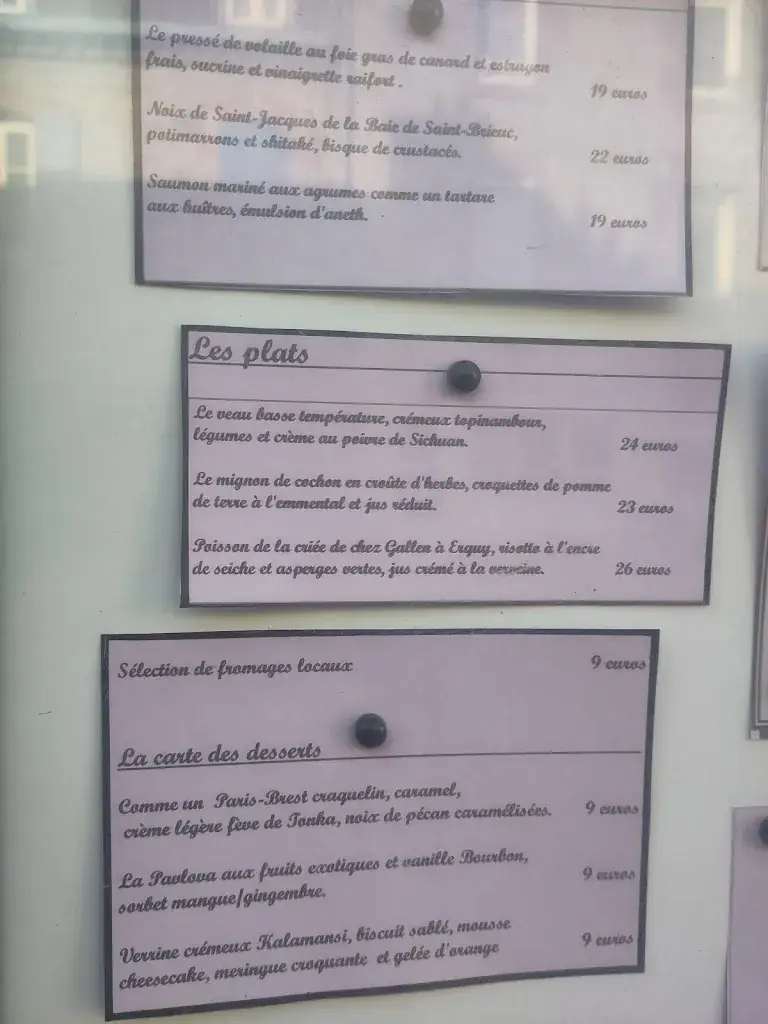 Le pressé de volaille au foie gras de canard et estragon
frais, sucrine et vinaigrette raifort.
19 euros
Noix de Saint-Jacques de la Baie de Saint-Brieuc,
potimarrons et shitaké, bisque de crustacés.
22 euros
Saumon mariné aux agrumes comme un tartare
aux huîtres, émulsion d'aneth.
19 euros
Les plats
Le veau basse température, crémeux topinambour,
légumes et crème au poivre de Sichuan.
24 euros
Le mignon de cochon en croûte d'herbes, croquettes de pomme
de terre à l'emmental et jus réduit.
23 euros
Poisson de la criée de chez Gallen à Erquy, risotto à l'encre
de seiche et asperges vertes, jus crémé à la verveine.
26 euros
Sélection de fromages locaux
9 euros
La carte des desserts
Comme un Paris-Brest craquelin, caramel,
crème légère fève de Tonka, noix de pécan caramélisées.
9 euros
La Pavlova aux fruits exotiques et vanille Bourbon,
sorbet mangue/gingembre.
9 euros
Verrine crémeux Kalamansi, biscuit sablé, mousse
cheesecake, meringue croquante et gelée d'orange
9 euros